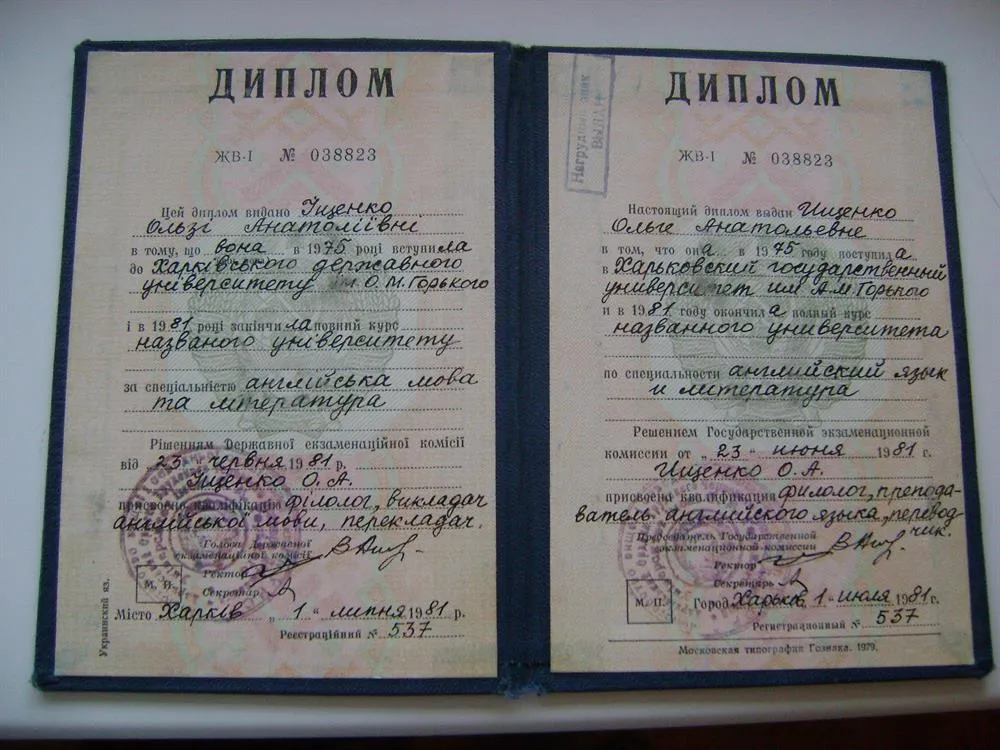 ДИПЛОМ
ЖВ-I № 038823
Цей диплом видано Іщенко
Ользі Анатоліївні
в тому, що вона в 1975 році вступила
до Харківського державного
університету ім. О.М.Горького
і в 1981 році закінчила повний курс
названого університету
за спеціальністю англійська мова
та література
Рішенням Державної екзаменаційної комісії
від „23" червня 1981 р.
Іщенко О.А.
присвоєна кваліфікація філолог, викладач
англійської мови, перекладач.
Голова Державної
екзаменаційної комісії
Ректор
Секретар
М. П.
Місто Харків „1" липня 1981 р.
Реєстраційний № 537
Украинский яз.
ДИПЛОМ
Нагрудный знак
ВЫДАН
ЖВ-I № 038823
Настоящий диплом выдан Ищенко
Ольге Анатольевне
в том, что она в 1975 году поступила
в Харьковский государственный
университет им А.М Горького
и в 1981 году окончила полный курс
названного университета
по специальности английский язык
и литература
Решением Государственной экзаменационной
комиссии от „23" июня 1981 г.
Ищенко О.А.
присвоена квалификация филолог, препода-
ватель английского языка, перевод-
чик.
Председатель Государственной
экзаменационной комиссии
Ректор
Секретарь
М. П.
Город Харьков 1" июля 1981 г.
Регистрационный № 537
Московская типография Гознака. 1979.